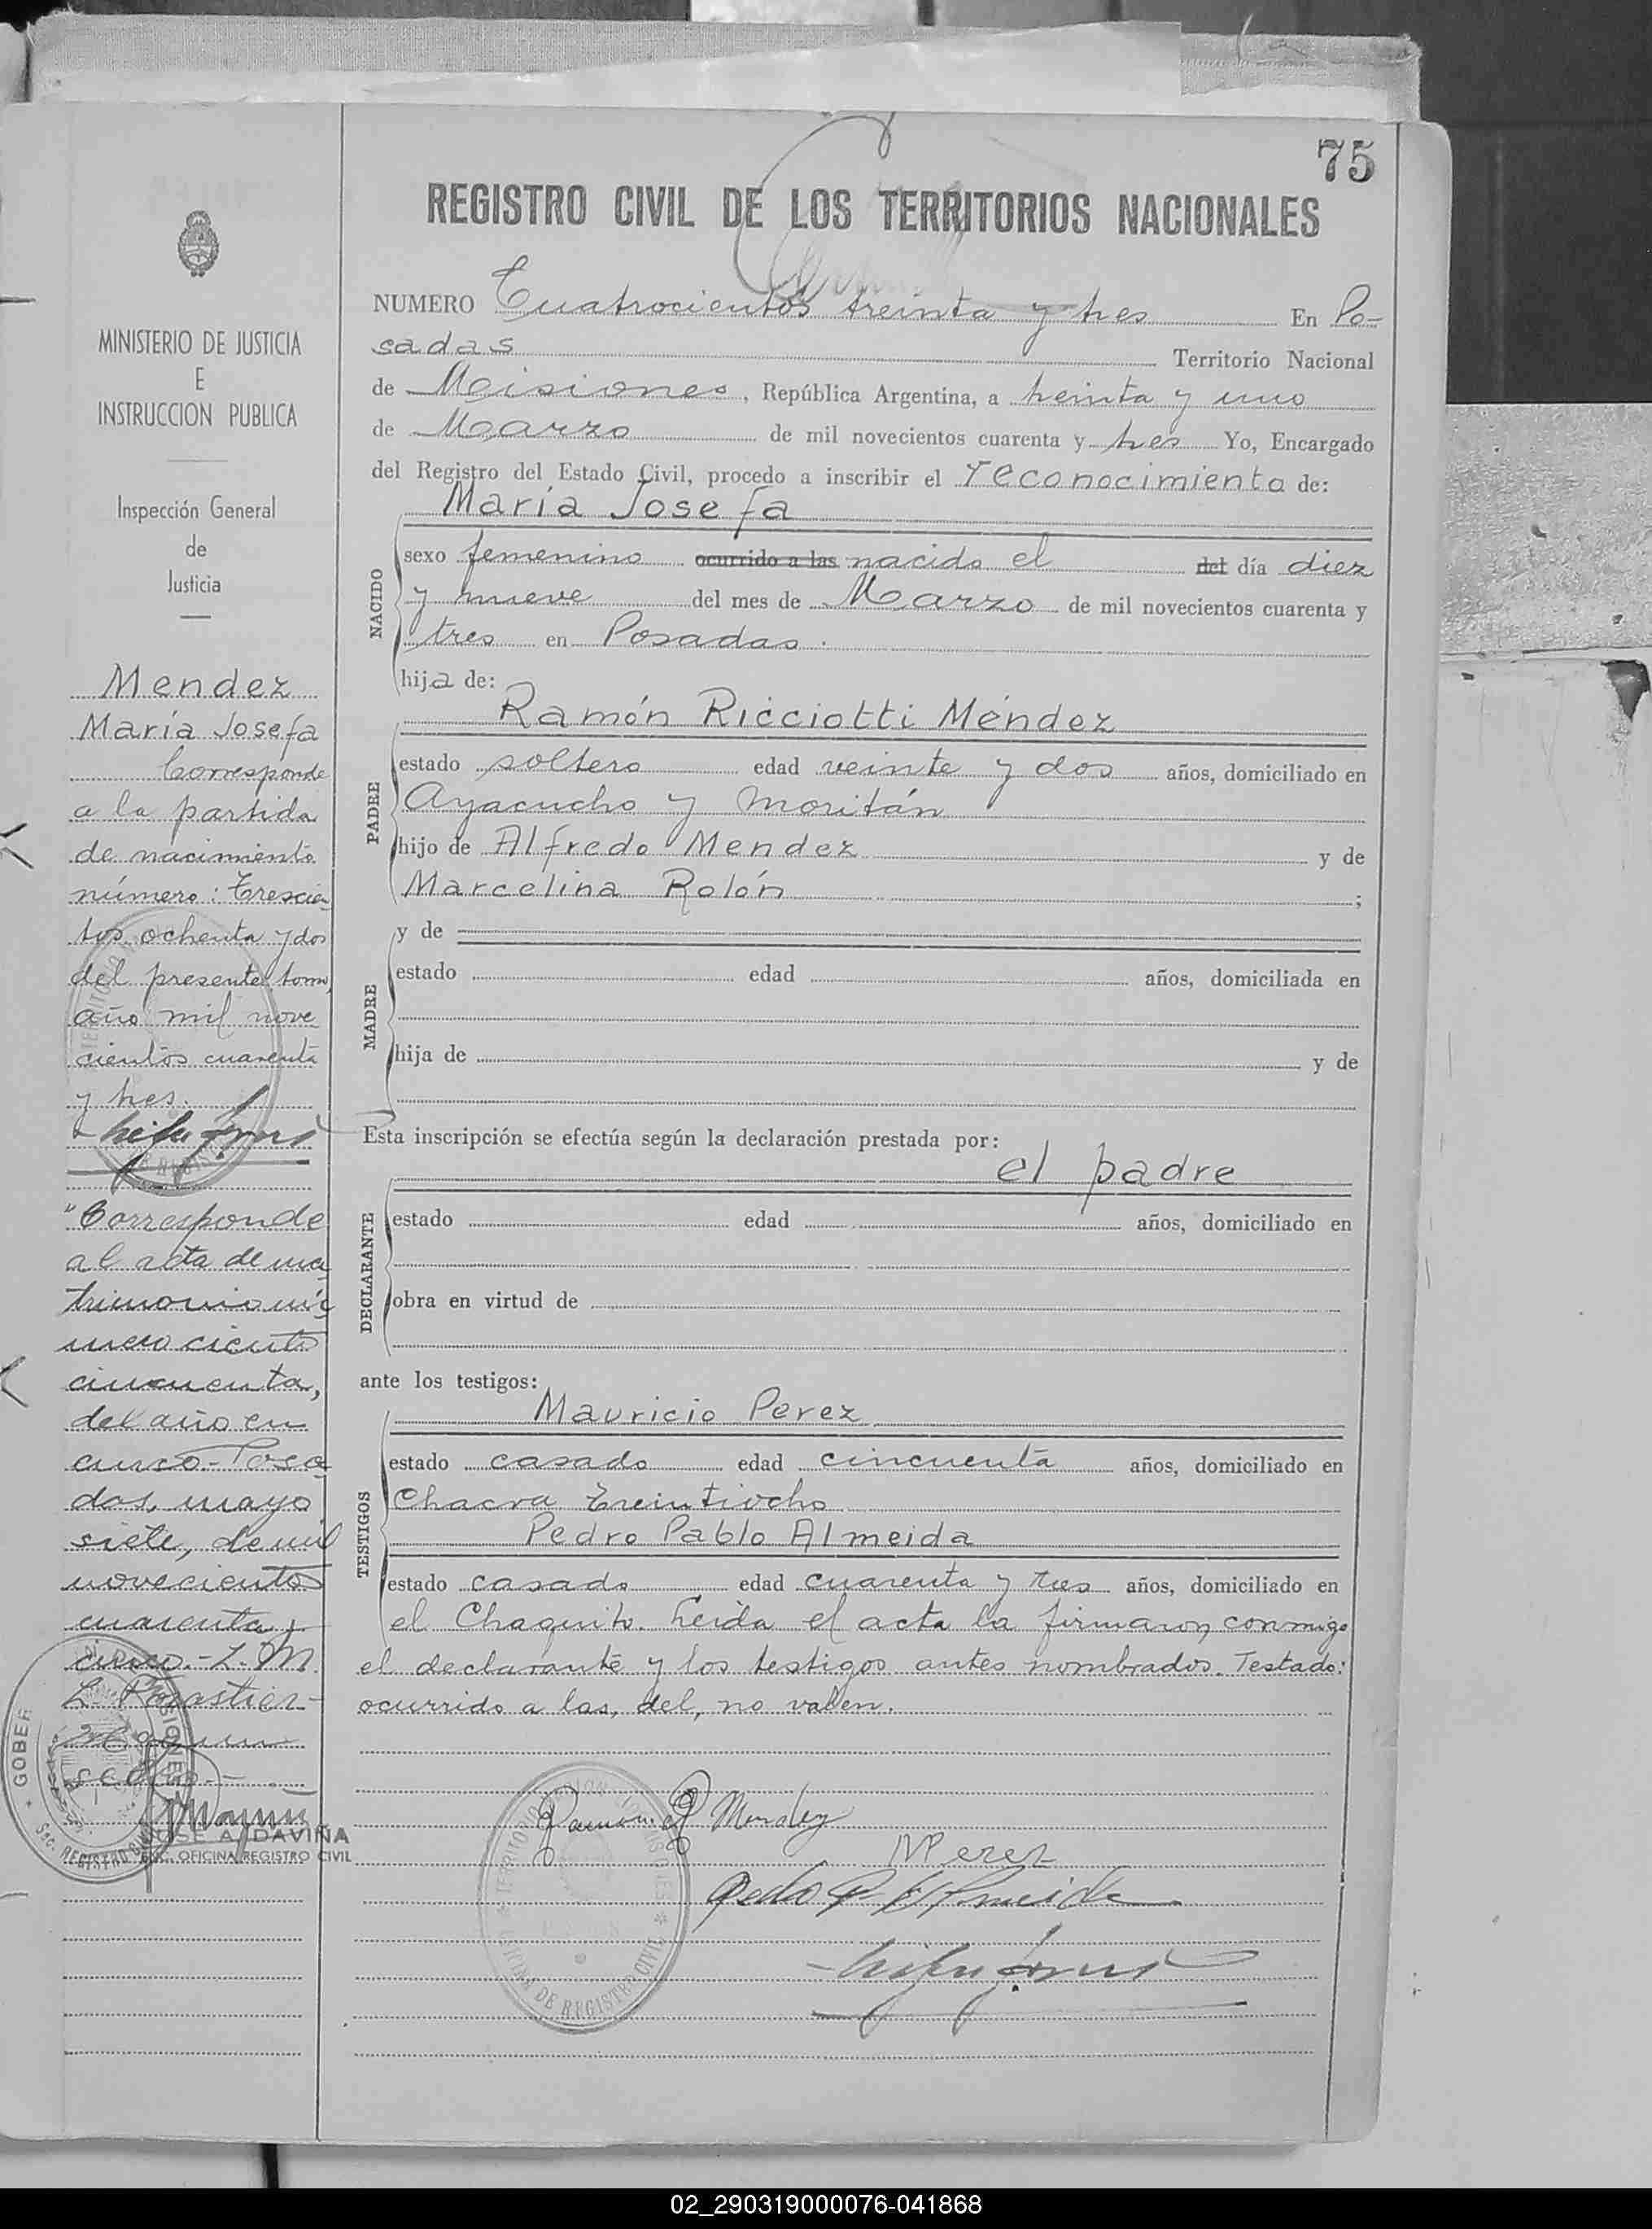 75
REGISTRO CIVIL DE LOS TERRITORIOS NACIONALES
NUMERO Cuatrocientos treinta y tres En Po-
sadas Territorio Nacional
de Misiones, República Argentina, a treinta y uno
de Marzo de mil novecientos cuarenta y tres Yo, Encargado
del Registro del Estado Civil, procedo a inscribir el reconocimiento de:
María Josefa
NACIDO
sexo femenino ocurrido a las nacida el del día diez
y nueve del mes de Marzo de mil novecientos cuarenta y
tres en Posadas.
hija de:
Ramón Ricciotti Méndez
PADRE
estado soltero edad veinte y dos años, domiciliado en
Ayacucho y Moritán
hijo de Alfredo Mendez y de
Marcelina Rolón ;
y de
MADRE
estado edad años, domiciliada en
hija de y de
Esta inscripción se efectúa según la declaración prestada por:
el padre
DECLARANTE
estado edad años, domiciliado en
obra en virtud de
ante los testigos:
Mauricio Perez
TESTIGOS
estado casado edad cincuenta años, domiciliado en
Chacra Treintiocho
Pedro Pablo Almeida
estado casado edad cuarenta y tres años, domiciliado en
el Chaquito. Leída el acta la firmaron conmigo
el declarante y los testigos antes nombrados. Testado:
ocurrido a las, del, no valen.
Ramon R Mendez
MPerez
Pedro P Almeida
TERRITORIO
OFICINA DE REGISTRO CIVIL
MINISTERIO DE JUSTICIA
E
INSTRUCCION PUBLICA
Inspección General
de
Justicia
Mendez
María Josefa
Corresponde
a la partida
de nacimiento
número: Trescien
tos ochenta y dos
del presente tomo,
año mil nove
cientos cuarenta
y tres.
"Corresponde
al acta de ma
trimonio nú
mero ciento
cincuenta,
del año en
curso.- Posa
das, mayo
siete, de mil
novecientos
cuarenta y
cinco.- L. M.
GOBER
MISIONES
SEC. REGISTRO CIVIL
JOSE A. DAVIÑA
ENC. OFICINA REGISTRO CIVIL
02_290319000076-041868